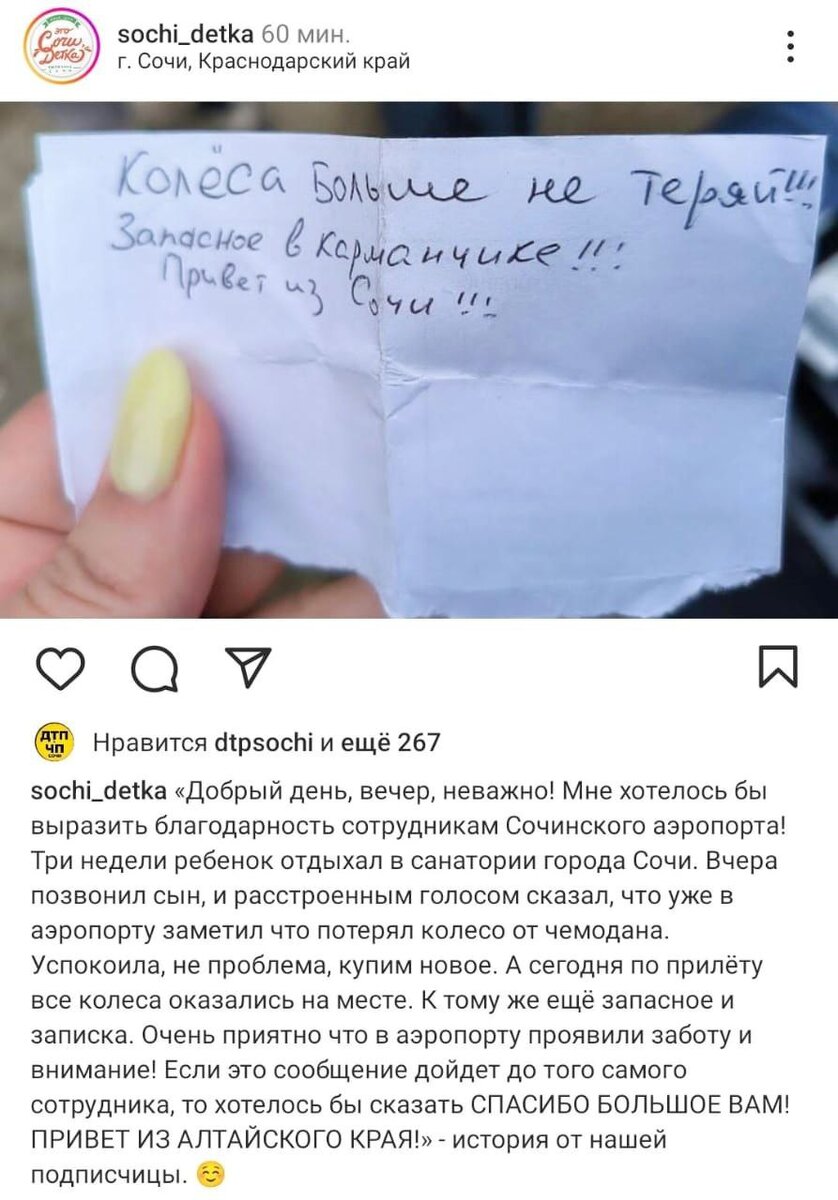 sochi_detka 60 мин.
г. Сочи, Краснодарский край
Колёса Больше не теряй!!!
Запасное в карманчике!!!
Привет из Сочи!!!
Нравится dtpsochi и ещё 267
sochi_detka «Добрый день, вечер, неважно! Мне хотелось бы
выразить благодарность сотрудникам Сочинского аэропорта!
Три недели ребенок отдыхал в санатории города Сочи. Вчера
позвонил сын, и расстроенным голосом сказал, что уже в
аэропорту заметил что потерял колесо от чемодана.
Успокоила, не проблема, купим новое. А сегодня по прилёту
все колеса оказались на месте. К тому же ещё запасное и
записка. Очень приятно что в аэропорту проявили заботу и
внимание! Если это сообщение дойдет до того самого
сотрудника, то хотелось бы сказать СПАСИБО БОЛЬШОЕ ВАМ!
ПРИВЕТ ИЗ АЛТАЙСКОГО КРАЯ!» - история от нашей
подписчицы. ☺️
это
Сочи,
Детка
ДТП
ЧП
СОЧИ